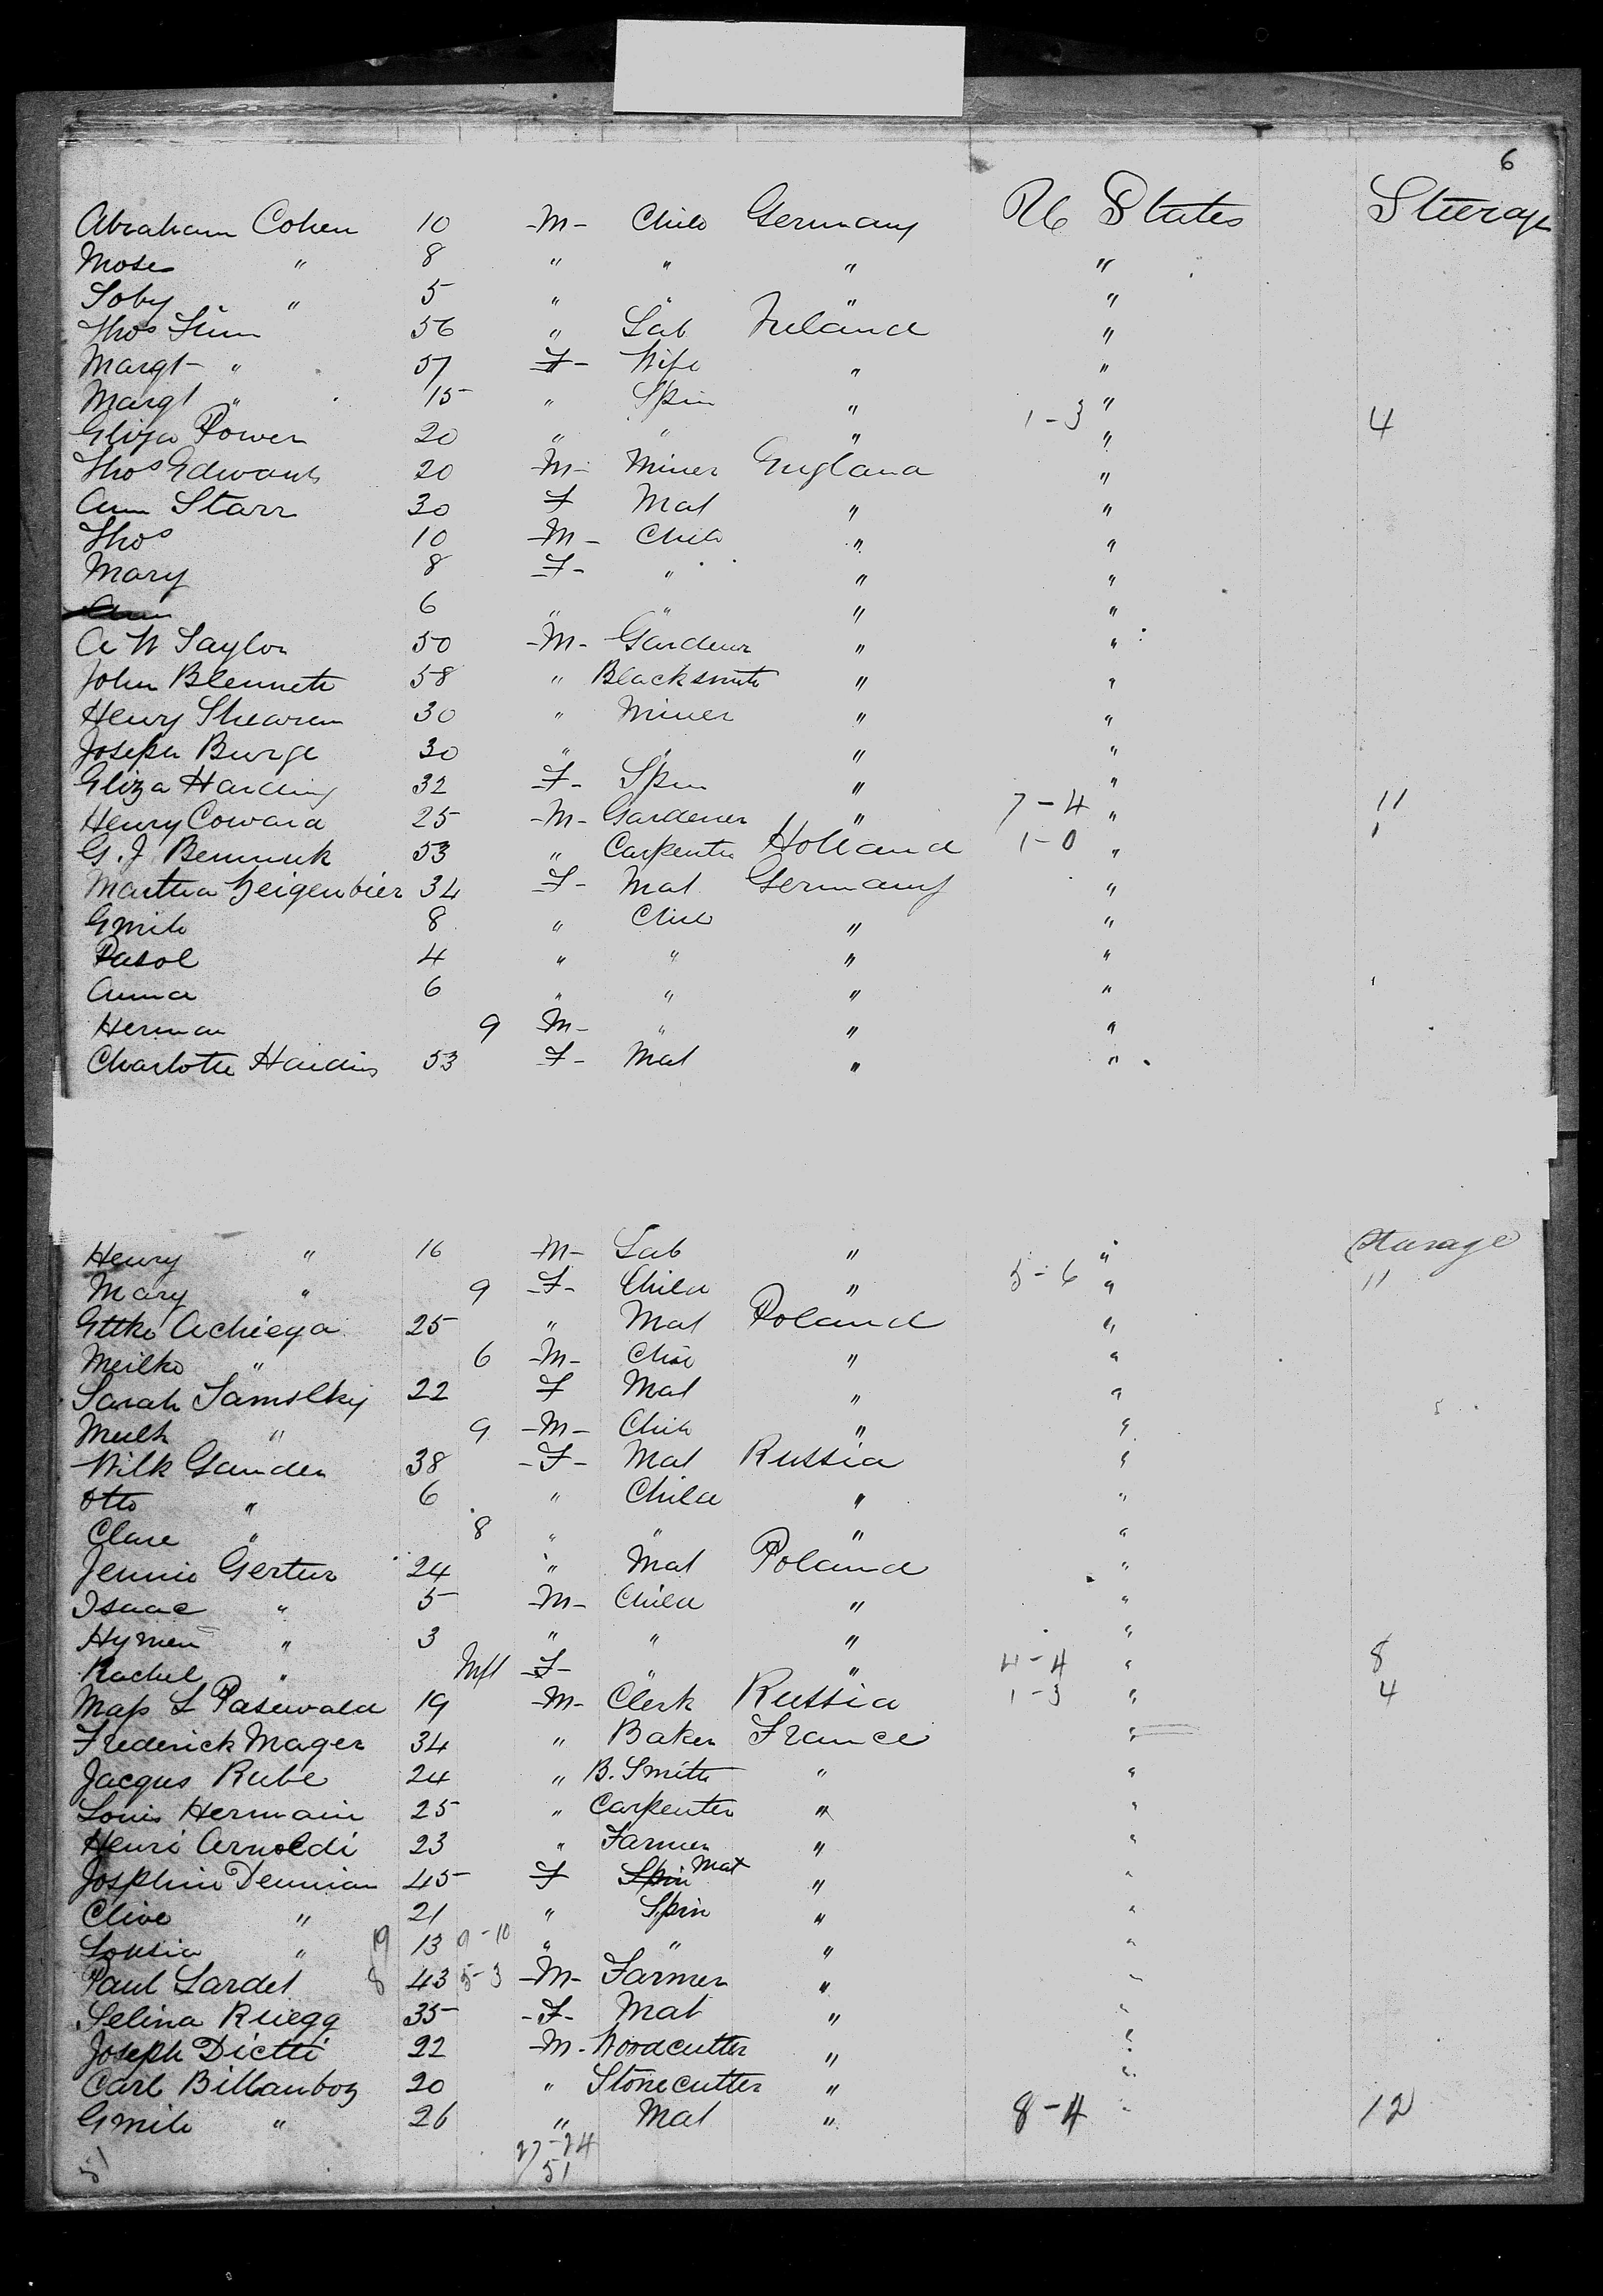 6
Abraham Cohen 10 M- Child Germany U States Steerage
Moses " 8 " " " "
Soby " 5 " " " "
Thos Finn 56 " Lab Ireland "
Margt " 57 F- Wife " "
Margt " 15 " Spin " "
Eliza Power 20 " " " 1-3 " 4
Thos Edwards 20 M- Miner England "
Ann Starr 30 F Mat " "
Thos 10 M- Child " "
Mary 8 F- " " "
Ann 6 " " " "
A W Taylor 50 M- Gardener " "
John Blennett 58 " Blacksmith " "
Henry Shearen 30 " Miner " "
Joseph Burge 30 " " " "
Eliza Harding 32 F- Spin " "
Henry Coward 25 M- Gardener " 7-4 " 11
G. J 53 " Carpenter Holland 1-0 " 1
Martha Zeigenbier 34 F- Mat Germany "
Emile 8 " Child " "
4 " " " "
Anna 6 " " " "
Herman 9 M- " " "
Charlotte 53 F- Mat " "
Henry " 16 M- Lab " " Steerage
Mary " 9 F- Child " 5-6 " 11
Ettke Achieya 25 " Mat Poland "
Meilke " 6 M- Child " "
Sarah Samslky 22 F Mat " "
" 9 M- Child " "
Wilk Gamden 38 F- Mat Russia "
Otto " 6 " Child " "
Clare " 8 " " " "
Jennie Gertur 24 " Mat Poland "
Isaac " 5 M- Child " "
Hymen " 3 " " " "
Rachel " Inft F- " " 4-4 " 8
L Pasewald 19 M- Clerk Russia 1-3 " 4
Frederick Mager 34 " Baker France "
Jacques Rube 24 " B. Smith " "
Louis Hermain 25 " Carpenter " "
Henri Arnoldi 23 " Farmer " "
Josphine Dennian 45 F Spin Mat " "
Clive " 21 " Spin " "
" 19 13 9-10 " " " "
Paul Lardet 8 43 5-3 M- Farmer " "
Selina Ruegg 35 F- Mat " "
Joseph Dictti 22 M- Woodcutter " "
Carl Billanboz 20 " Stonecutter " "
Emile " 26 " Mat " 8-4 " 12
27-24
51 51